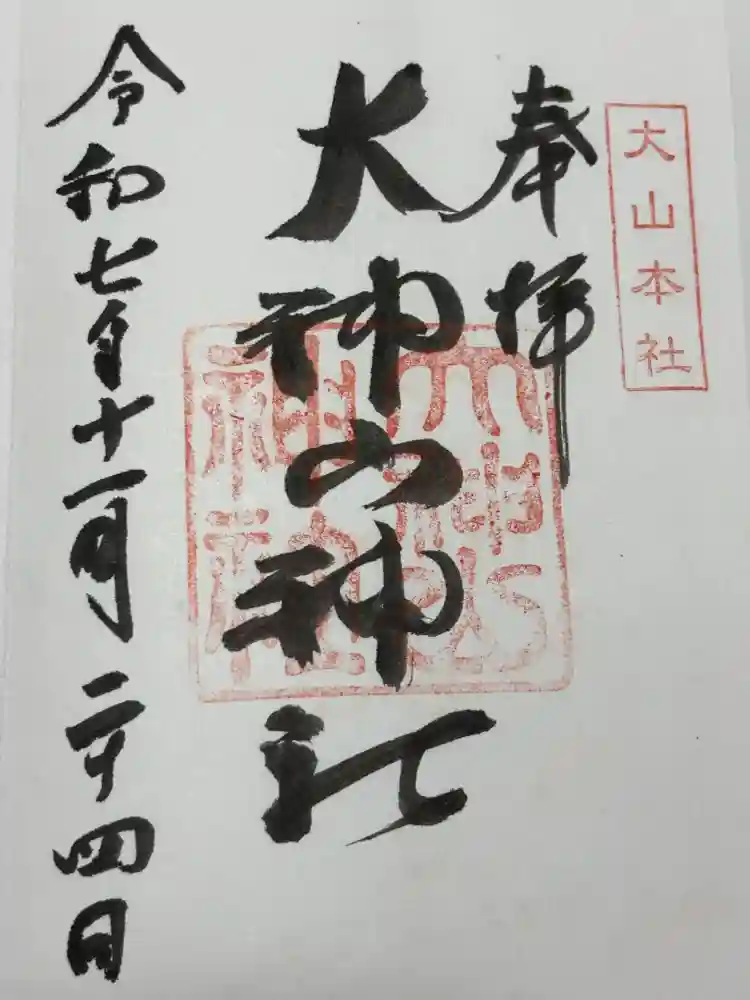 大山本社
奉拝
大神山神社
大神山
神社
令和七年十一月二十四日